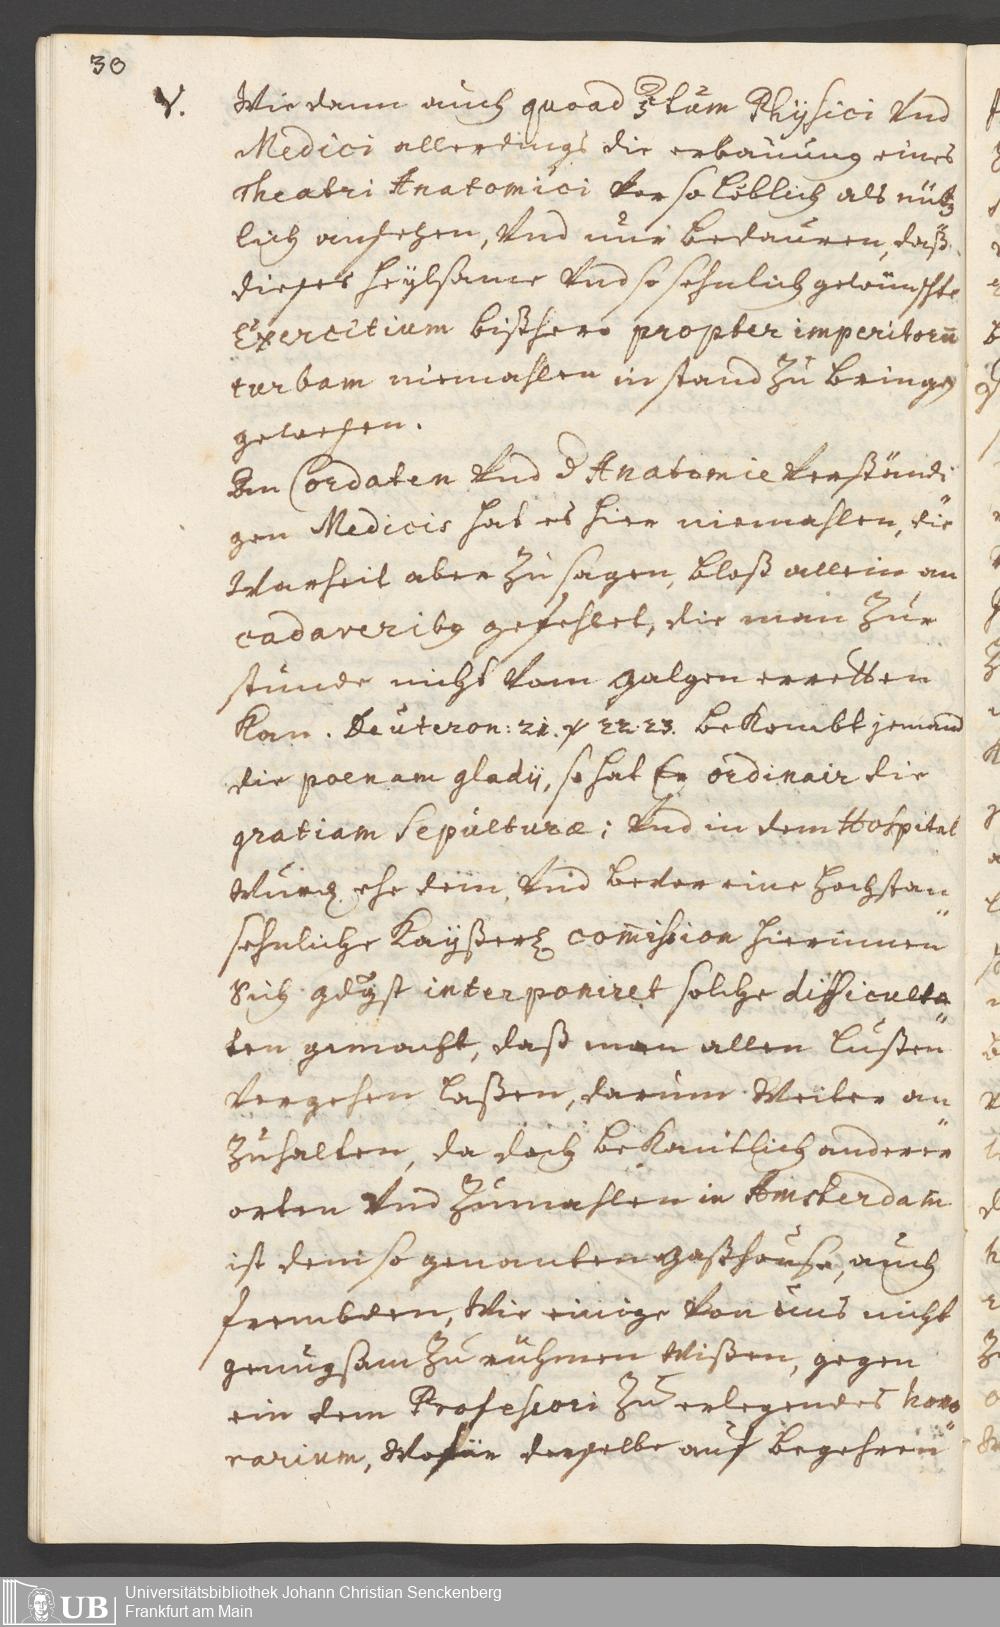 30
V. Wie dann auch quoad 5tum Physici Vnd
Medici allerdings die erbauung eines
Theatri Anatomici Vor so löblich als nütz
lich ansehen, Vnd nur bedauren, daß
dießes heylsame Vnd so sehnlich gewünschte
Exercitium bißhero propter imperitorū
turbam niemahlen in stand zu bringen
geweßen.
An Cordaten Vnd d Anatomie Verständi
gen Medicis hat es hier niemahlen, die
Warheit aber zu sagen, bloß allein an
cadaveribg gefehlet, die man zur
stunde nicht Vom galgen erretten
Kan. Deuteron: 21. 22. 23. beKombt jemand
die poenam gladij, so hat Er ordinair die
gratiam Sepulturæ; Vnd in dem Hospital
wurd ehe dem, Vnd bevor eine hochstan
sehnliche Kayßerl com̄ission hierinnen
Sich gdgst interponiret solche difficulta
ten gemacht, daß man allen lusten
Vergehen laßen, darum Weiter an
zuhalten, da doch beKantlich anderer
orten Vnd zumahlen in Amsterdam
ist dem so genanten gasthause, auch
frembden, Wie einige Von uns nicht
genugsam zu rühmen Wißen, gegen
ein dem Professori zu erlegendes hono
rarium, Wofür derselbe auf begehren
Universitätsbibliothek Johann Christian Senckenberg
Frankfurt am Main
UB